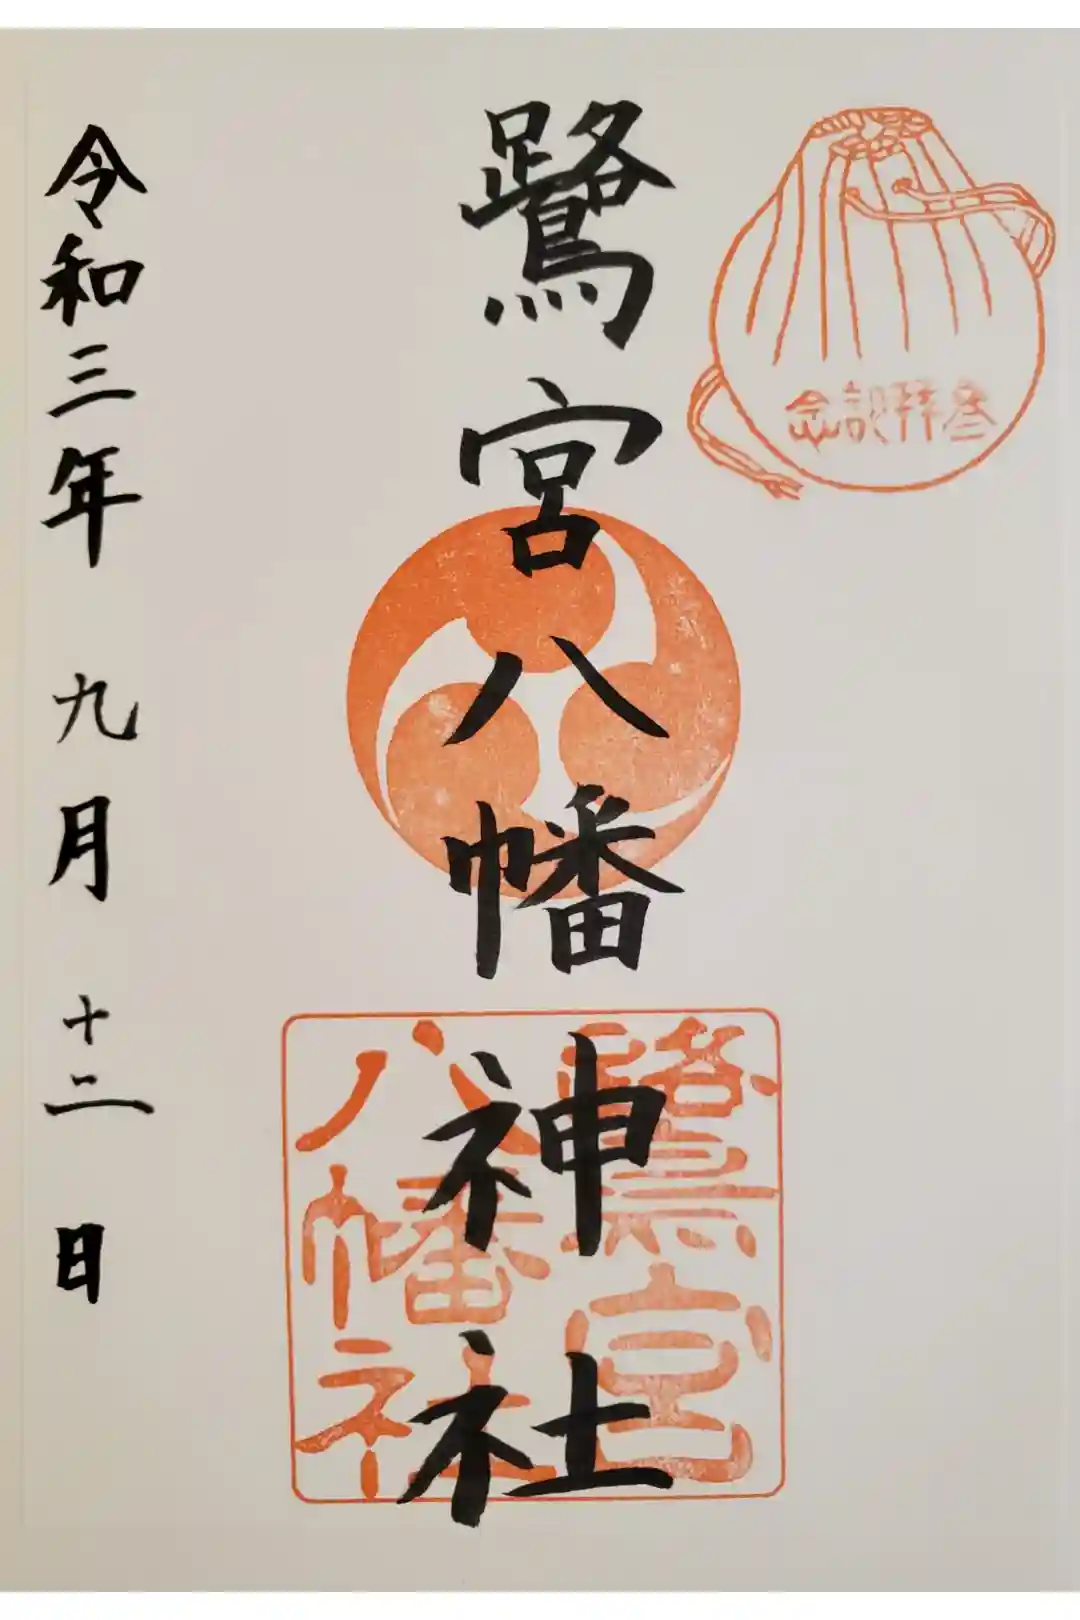 参拝記念
鷺宮八幡神社
鷺宮
八幡社
令和三年 九月 十二日